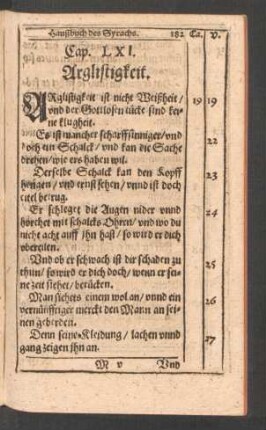 Haußbuch des Syrachs. 182 Ca. v.
Cap. LXI.
Arglistigkeit.
ARglistigkeit ist nicht Weißheit / 19 19
vnd der Gottlosen tücke sind kei-
ne klugheit.
Es ist mancher scharffsinniger / vnd 22
doch ein Schalck / vnd kan die Sache
drehen / wie ers haben wil.
Derselbe Schalck kan den Kopff 23
hengen / vnd ernst sehen / vnnd ist doch
eitel betrug.
Er schleget die Augen nider vnnd 24
horchet mit schalcks Ohren / vnd wo du
nicht acht auff jhn hast / so wird er dich
vbereilen.
Vnd ob er schwach ist dir schaden zu 25
thun / so wird er dich doch / wenn er sei-
ne zeit siehet / berücken.
Man sihets einem wol an / vnnd ein 26
vernünfftiger merckt den Mann an sei-
nen geberden.
Denn seine Kleidung / lachen vnnd 27
gang zeigen jhn an.
M v Vny